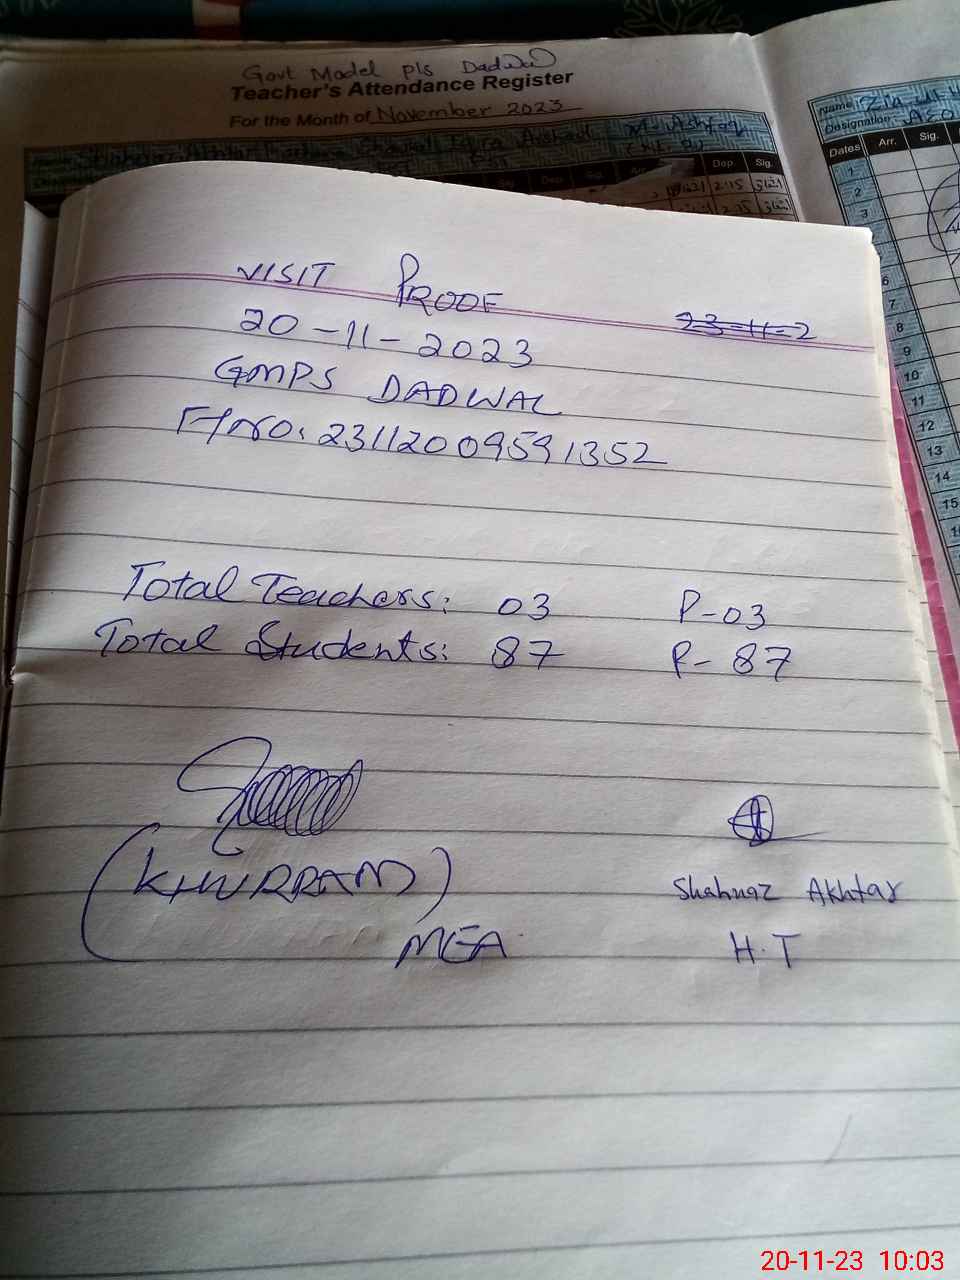 Govt Model P/s Dadwal
Teacher's Attendance Register
For the Month of November 2023
Name
Dep. Sig.
2:15
2:15
Name Zia ul
Designation AEO
Dates Arr. Sig.
1
2
3
6
7
8
9
10
11
12
13
14
15
VISIT PROOF
23-11-2
20-11-2023
GMPS DADWAL
23112009591352
Total Teachers: 03 P-03
Total Students: 87 P-87
(KHURRAM)
MEA
Shahnaz Akhtar
H.T
20-11-23 10:03